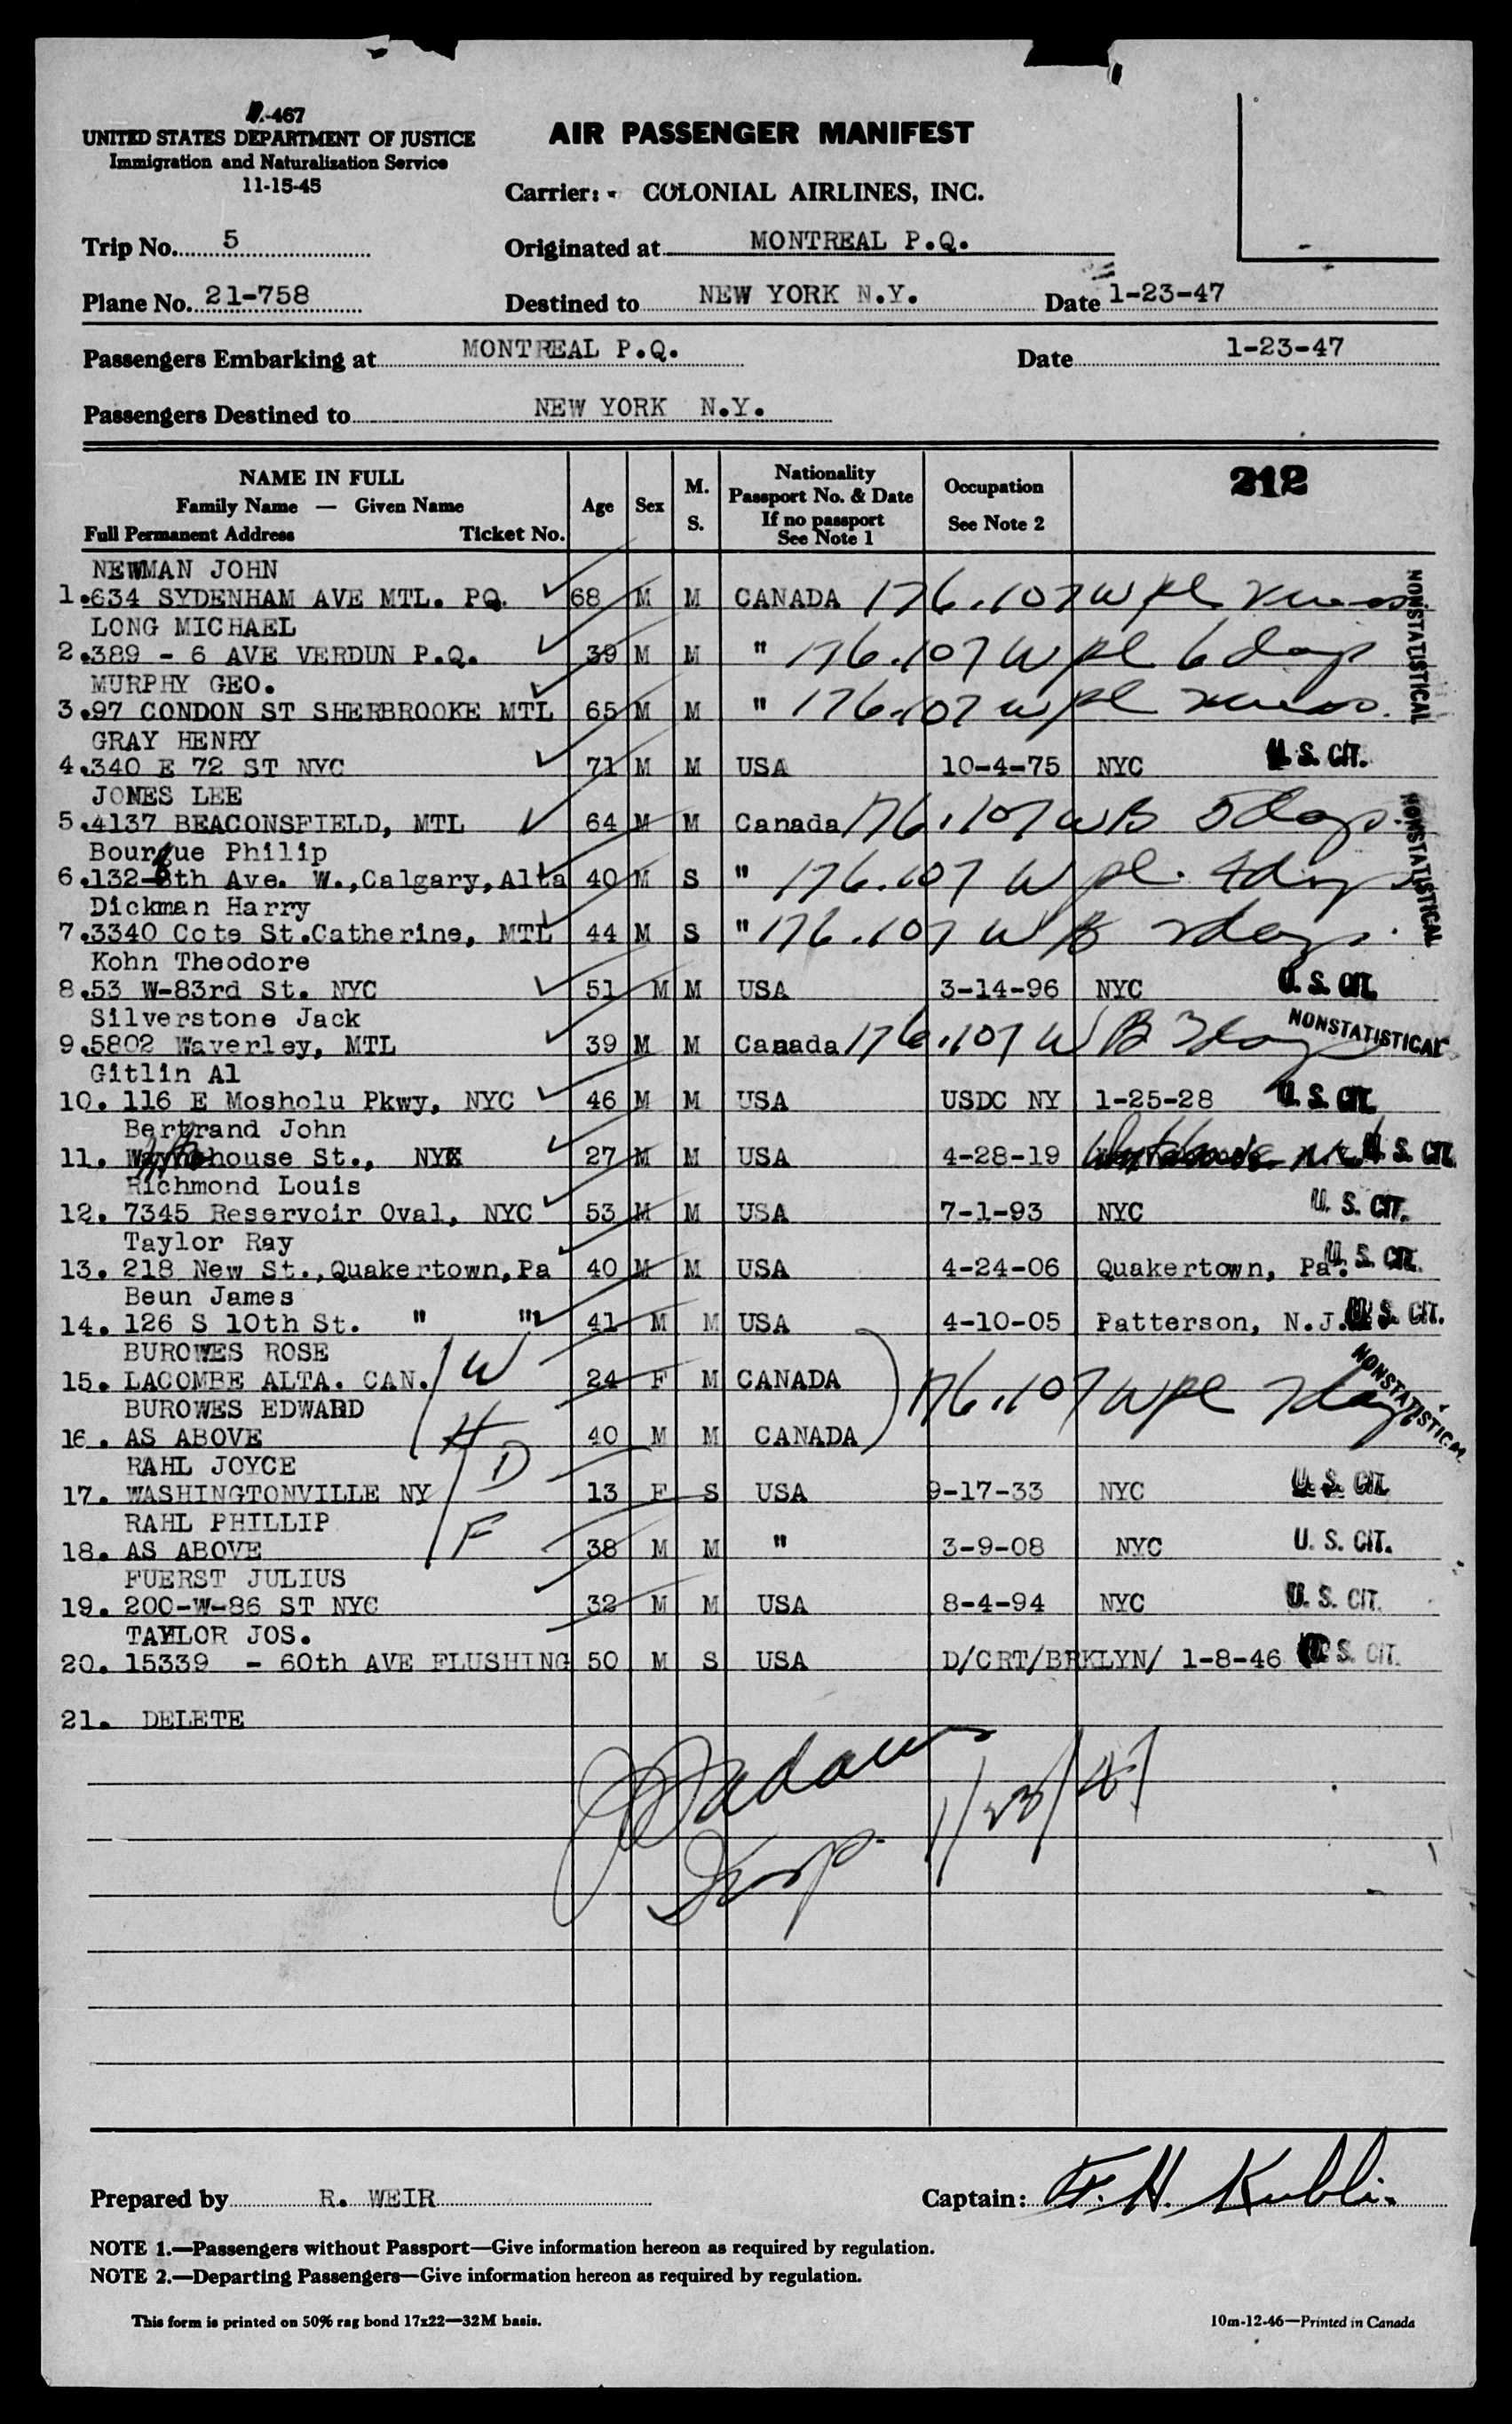 -467
UNITED STATES DEPARTMENT OF JUSTICE
Immigration and Naturalization Service
11-15-45
AIR PASSENGER MANIFEST
Carrier: - COLONIAL AIRLINES, INC.
Trip No. 5
Originated at MONTREAL P.Q.
Plane No. 21-758
Destined to NEW YORK N.Y. Date 1-23-47
Passengers Embarking at MONTREAL P.Q. Date 1-23-47
Passengers Destined to NEW YORK N.Y.
NAME IN FULL
Family Name — Given Name
Full Permanent Address Ticket No.
Age
Sex
M.
S.
Nationality
Passport No. & Date
If no passport
See Note 1
Occupation
See Note 2
212
NEWMAN JOHN
1. 634 SYDENHAM AVE MTL. PQ. 68 M M CANADA 176.107 W pl NONSTATISTICAL
LONG MICHAEL
2. 389 - 6 AVE VERDUN P.Q. 39 M M " 176.107 W pl 6 days
MURPHY GEO.
3. 97 CONDON ST SHERBROOKE MTL 65 M M " 176.107 W pl
GRAY HENRY
4. 340 E 72 ST NYC 71 M M USA 10-4-75 NYC U. S. CIT.
JONES LEE
5. 4137 BEACONSFIELD, MTL 64 M M Canada 176.107 W B 5 days NONSTATISTICAL
Bourque Philip
6. 132-8th Ave. W.,Calgary,Alta 40 M S " 176.107 W pl. 4 days
Dickman Harry
7. 3340 Cote St.Catherine, MTL 44 M S " 176.107 W B 2 days
Kohn Theodore
8. 53 W-83rd St. NYC 51 M M USA 3-14-96 NYC U. S. CIT.
Silverstone Jack
9. 5802 Waverley, MTL 39 M M Canada 176.107 W B 3 days NONSTATISTICAL
Gitlin Al
10. 116 E Mosholu Pkwy, NYC 46 M M USA USDC NY 1-25-28 U. S. CIT.
Bertrand John
11. house St., NY 27 M M USA 4-28-19 U. S. CIT.
Richmond Louis
12. 7345 Reservoir Oval, NYC 53 M M USA 7-1-93 NYC U. S. CIT.
Taylor Ray
13. 218 New St.,Quakertown,Pa 40 M M USA 4-24-06 Quakertown, Pa. U. S. CIT.
Beun James
14. 126 S 10th St. " " 41 M M USA 4-10-05 Patterson, N.J. U. S. CIT.
BUROWES ROSE
15. LACOMBE ALTA. CAN. W 24 F M CANADA 176.107 W pl 7 days NONSTATISTICAL
BUROWES EDWARD
16. AS ABOVE H 40 M M CANADA
RAHL JOYCE
17. WASHINGTONVILLE NY D 13 F S USA 9-17-33 NYC U. S. CIT.
RAHL PHILLIP
18. AS ABOVE F 38 M M " 3-9-08 NYC U. S. CIT.
FUERST JULIUS
19. 200-W-86 ST NYC 32 M M USA 8-4-94 NYC U. S. CIT.
TAYLOR JOS.
20. 15339 - 60th AVE FLUSHING 50 M S USA D/CRT/BRKLYN/ 1-8-46 U. S. CIT.
21. DELETE
1/23/47
Insp.
Prepared by R. WEIR
Captain: F. H. Kubli.
NOTE 1.—Passengers without Passport—Give information hereon as required by regulation.
NOTE 2.—Departing Passengers—Give information hereon as required by regulation.
This form is printed on 50% rag bond 17x22—32M basis.
10m-12-46—Printed in Canada